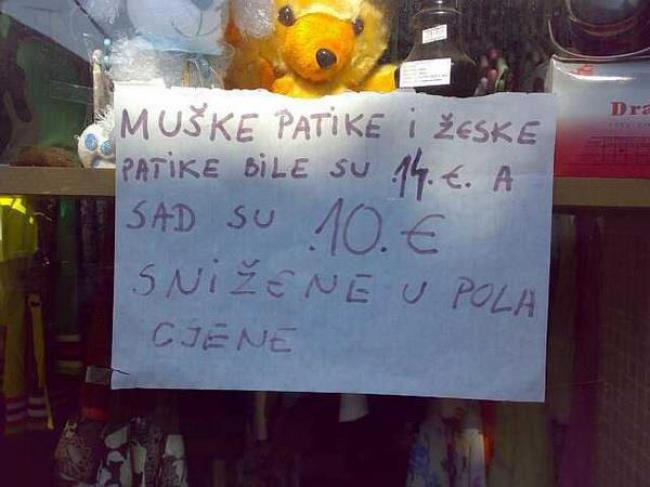 MUŠKE PATIKE i ŽESKE
PATIKE BILE SU .14.€. A
SAD SU .10.€
SNiŽENE U POLA
CJENE
Dra